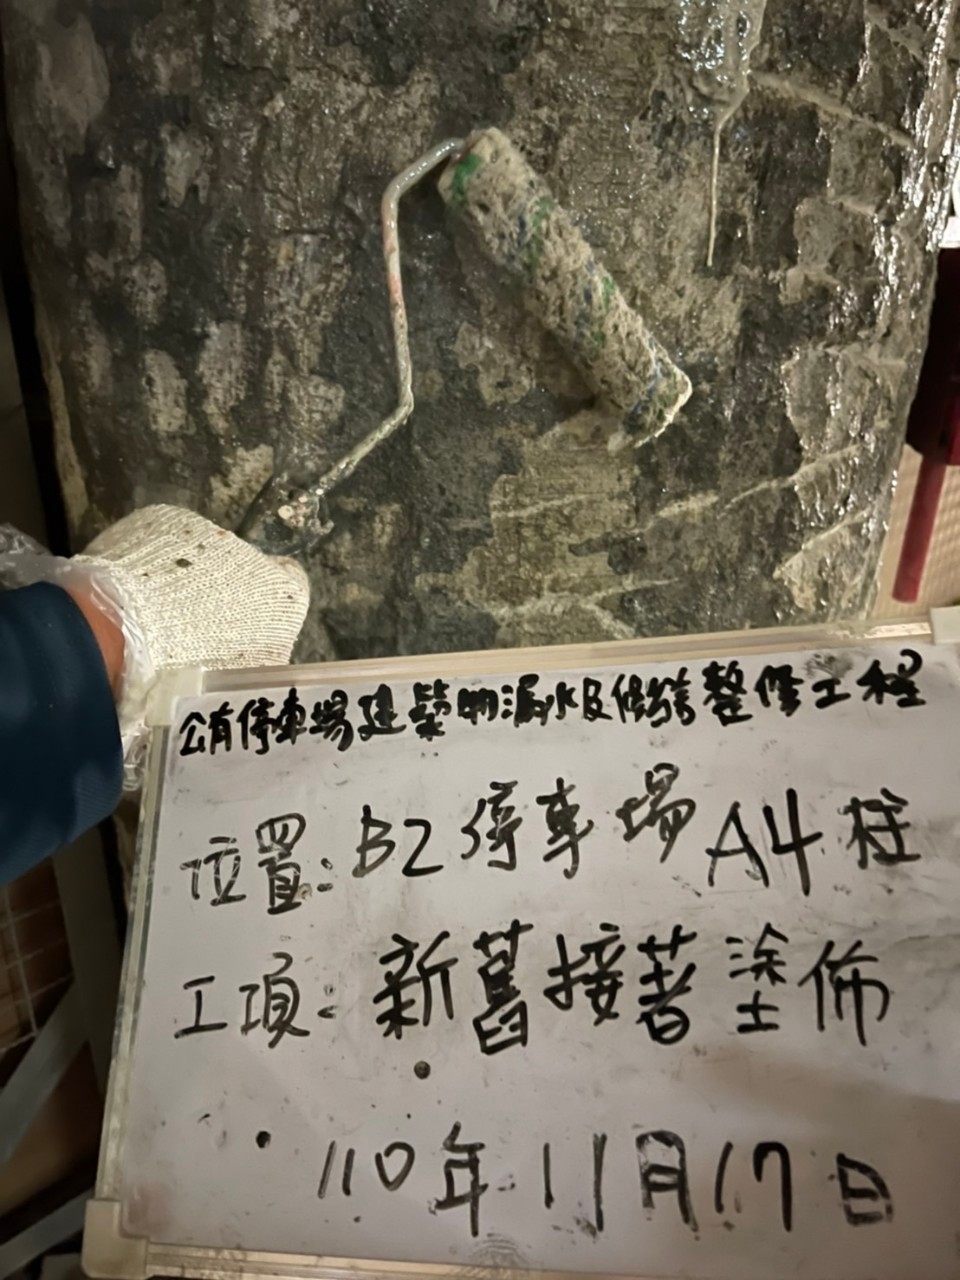 公有停車場建築物漏水及修繕整修工程
位置:B2停車場A4柱
工項:新舊接著塗佈
110年11月17日